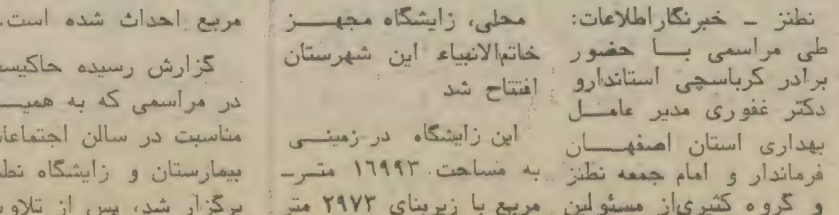 نطنز ـ خبرنگار اطلاعات:
طی مراسمی بـــا حضور
برادر کرباسچی استاندارو
دکتر غفوری مدیر عامـــل
بهداری استان اصفهـــان
فرماندار و امام جمعه نطنز
و گروه کثیری‌از مسئولین
محلی، زایشگاه مجهـــز
خاتم‌الانبیاء این شهرستان
افتتاح شد
این زایشگاه در زمینـــی
به مساحت ۱۶۹۹۳ متـرـ
مربع با زیربنای ۲۹۷۳ متر
مربع احداث شده است.
گزارش رسیده حاکیست
در مراسمی که به همیـــ
مناسبت در سالن اجتماعات
بیمارستان و زایشگاه نطنـ
برگزار شد، پس از تلاوت